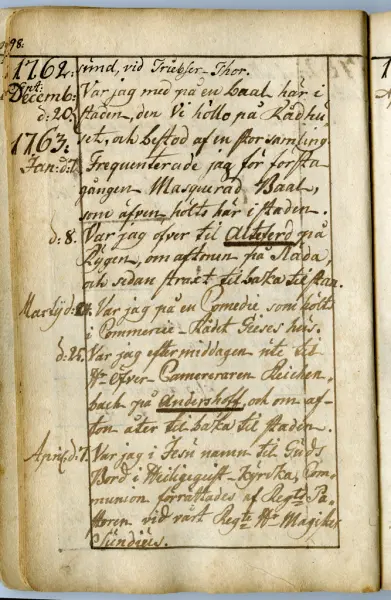 98.
1762. sund, vid Triebser-Thor.
Decemb: Var jag med på en Baal här i
d: 20. staden, den Vi höllo på Rådhu-
1763. set, och bestod af en stor samling.
Jan: d: 1. Frequenterade jag för första
gången Masquerad Baal,
som äfven hölts här i staden.
d: 8. Var jag öfver til Altefehrd på
Rügen, om aftonen på Släda,
och sedan straxt tilbaka til stan.
Martij d: Var jag på en Comedie som hölts
i Commercie-Rådet Gieses hus.
d: 25. Var jag efter middagen ute til
Hr Öfver-Camereraren Reichen-
bach på Andershoff, och om af-
ton åter tilbaka til staden.
April. d: 1. Var jag i Jesu namn til Guds
Bord i Heiligegeist-Kyrka, Com-
munion förrättades af Regts Pa-
storen vid vårt Regte Hr Magister
Sundius.